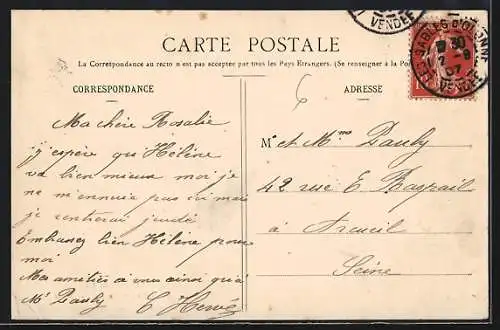 VENDÉE
CARTE POSTALE
SABLES D'OLONNE
30
2 - 8
07
VENDÉE
La Correspondance au recto n'est pas acceptée par tous les Pays Étrangers. (Se renseigner à la Po
CORRESPONDANCE
ADRESSE
Ma chère Rosalie
j'espère qu'Hélène
va bien mieux moi je
ne m'ennuie pas ici mais
je rentrerai jeudi
Embrassez bien Hélène pour
moi
Mes amitiés à vous ainsi qu'à
Mr Pauly C Hervé
Mr et Mme Pauly
42 rue E. Raspail
à Arcueil
Seine